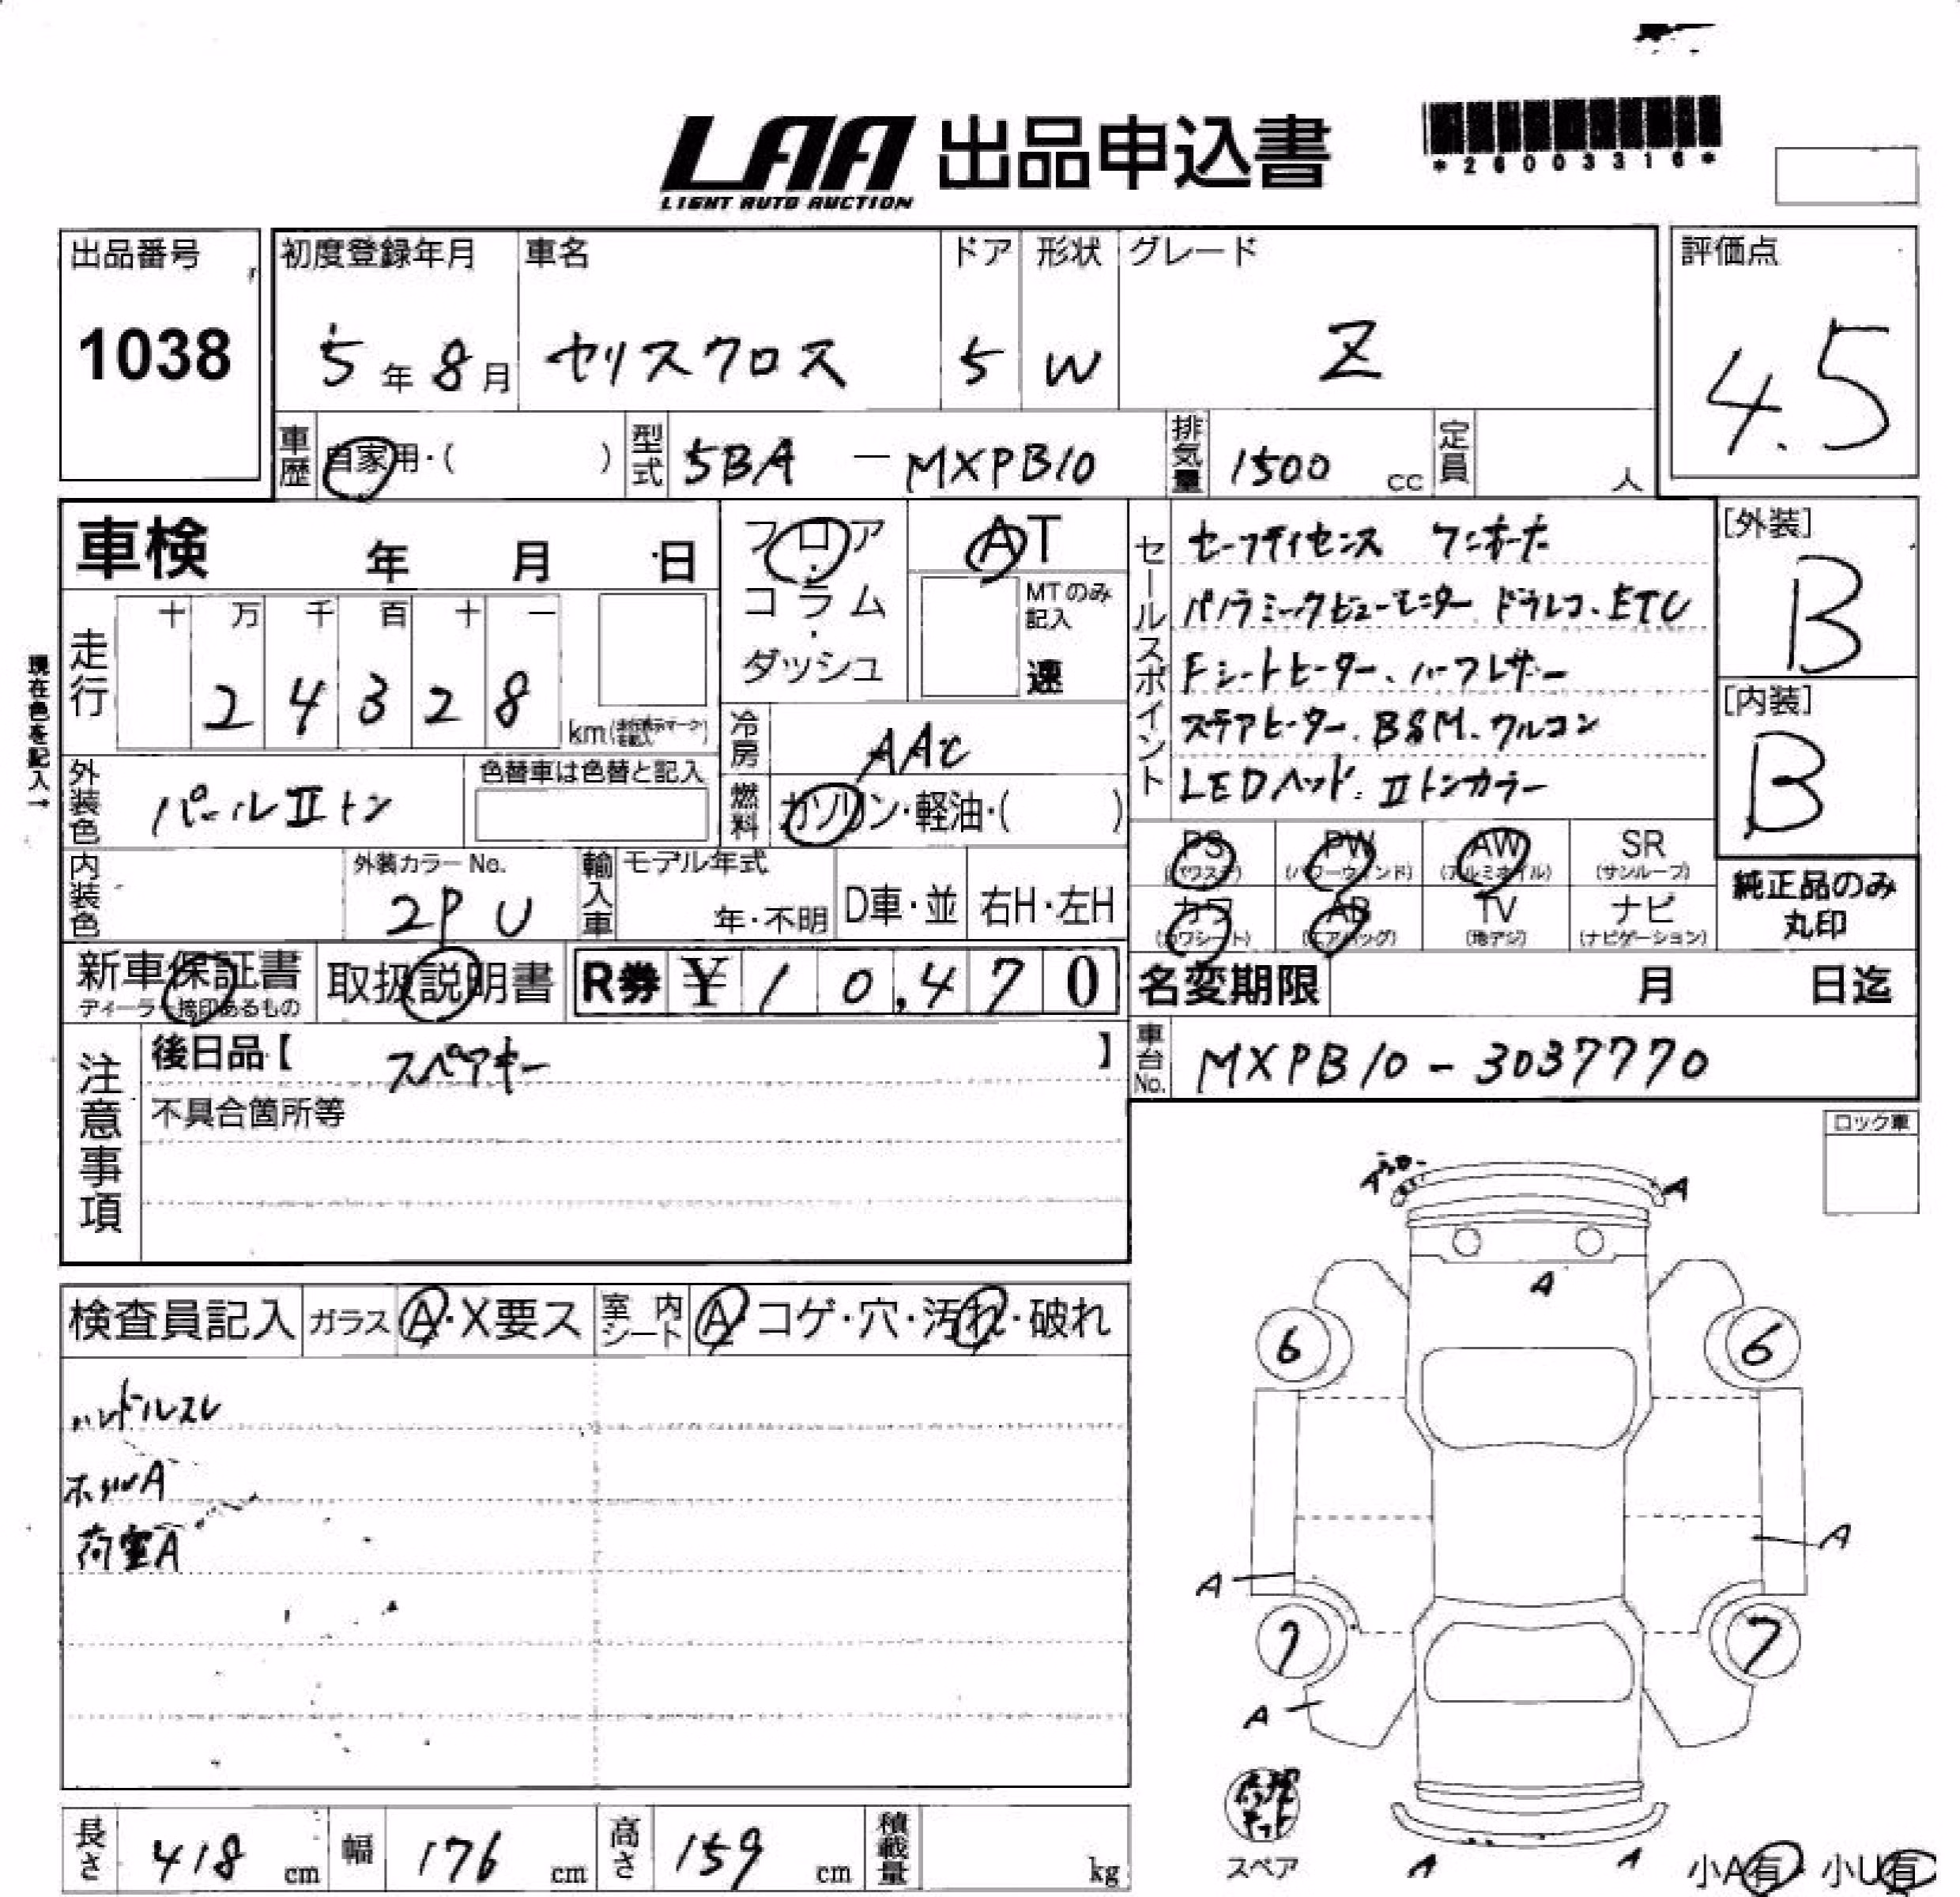 LAA 出品申込書
LIGHT AUTO AUCTION
*26003316*
出品番号
1038
初度登録年月
5年8月
車名
セリスクロス
ドア
5
形状
W
グレード
Z
評価点
4.5
車歴 自家用・( )
型式 5BA - MXPB10
排気量 1500 cc
定員 人
車検 年 月 日
フロア・コラム・ダッシュ
AT
MTのみ記入
速
セールスポイント
セーフティセンス ワンオーナ
パノラミックビューモニター ドラレコ・ETC
Fシートヒーター、ハーフレザー
ステアヒーター、BSM、クルコン
LEDヘッド、IIトンカラー
[外装]
B
[内装]
B
現在色を記入→
走行
十 万 千 百 十 一
2 4 3 2 8
km
冷房 AAC
燃料 ガソリン・軽油・( )
外装色 パールIIトン
色替車は色替と記入
内装色
外装カラーNo.
2PU
輸入車
モデル年式
年・不明
D車・並
右H・左H
PS (パワステ)
PW (パワーウィンド)
AW (アルミホイル)
SR (サンルーフ)
カワ (カワシート)
AB (エアバッグ)
TV (地デジ)
ナビ (ナビゲーション)
純正品のみ丸印
新車保証書
ディーラー捺印あるもの
取扱説明書
R券 ¥10,470
名変期限 月 日迄
注意事項
後日品【 スペアキー 】
不具合箇所等
車台No. MXPB10-3037770
ロック車
検査員記入
ガラス A・X要ス
室内シート A・コゲ・穴・汚れ・破れ
ハンドルスレ
荷室A
A
A
A
6 6
A
A
7 7
A
スペア
A A
小A有・小U有
長さ 418 cm
幅 176 cm
高さ 159 cm
積載量 kg